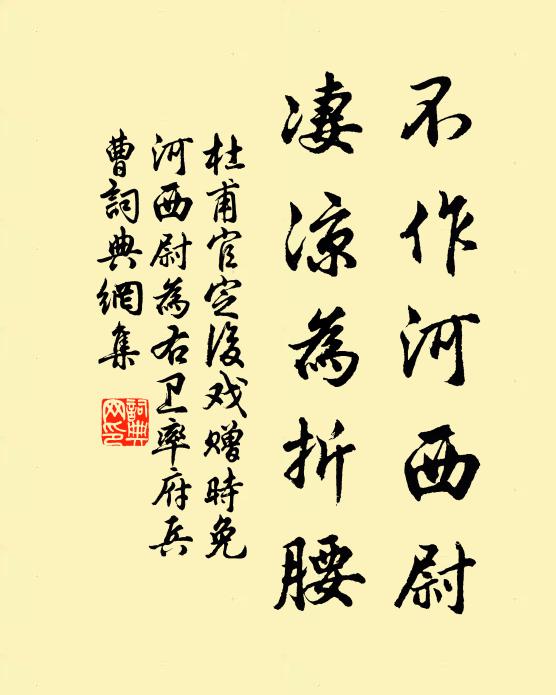 不作河西尉
凄涼為折腰
杜甫官定後戏赠時免
河西尉為右卫率府兵
曹詞典網集
詞典網印